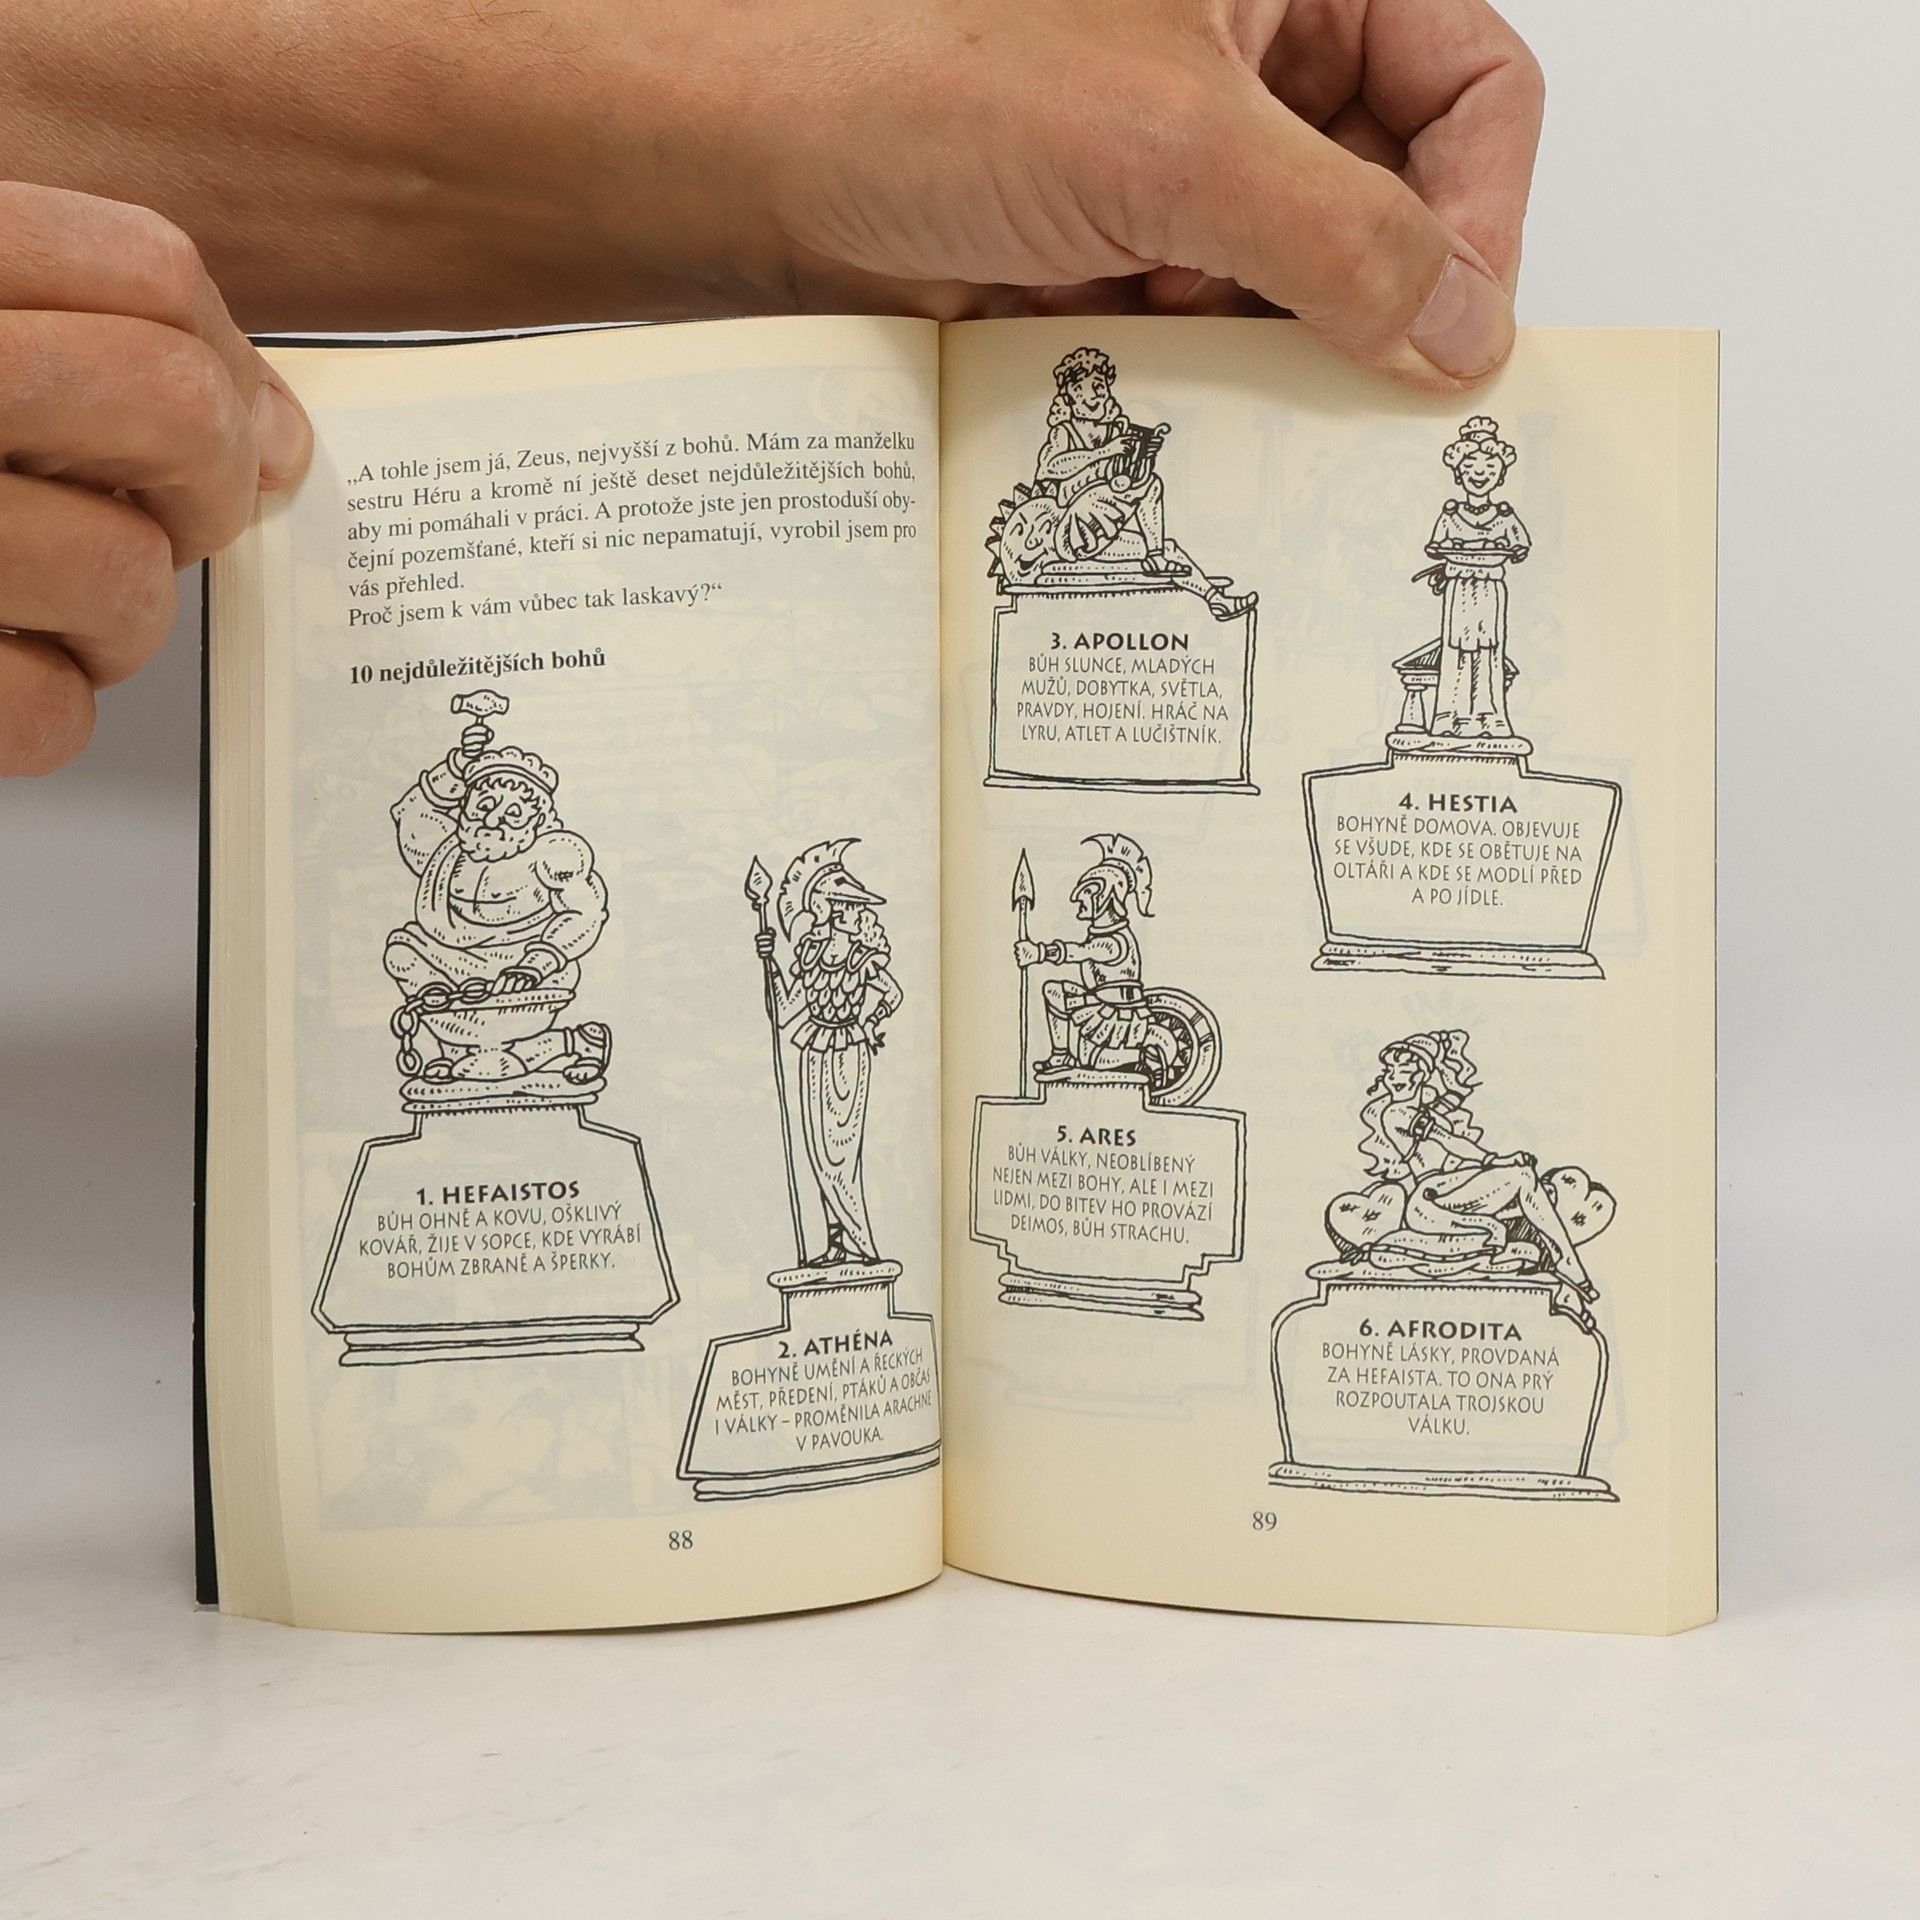 „A tohle jsem já, Zeus, nejvyšší z bohů. Mám za manželku
sestru Héru a kromě ní ještě deset nejdůležitějších bohů,
aby mi pomáhali v práci. A protože jste jen prostoduší oby-
čejní pozemšťané, kteří si nic nepamatují, vyrobil jsem pro
vás přehled.
Proč jsem k vám vůbec tak laskavý?“
10 nejdůležitějších bohů
1. HEFAISTOS
BŮH OHNĚ A KOVU, OŠKLIVÝ
KOVÁŘ, ŽIJE V SOPCE, KDE VYRÁBÍ
BOHŮM ZBRANĚ A ŠPERKY.
2. ATHÉNA
BOHYNĚ UMĚNÍ A ŘECKÝCH
MĚST, PŘEDENÍ, PTÁKŮ A OBČAS
I VÁLKY – PROMĚNILA ARACHNE
V PAVOUKA.
88
3. APOLLON
BŮH SLUNCE, MLADÝCH
MUŽŮ, DOBYTKA, SVĚTLA,
PRAVDY, HOJENÍ. HRÁČ NA
LYRU, ATLET A LUČIŠTNÍK.
4. HESTIA
BOHYNĚ DOMOVA. OBJEVUJE
SE VŠUDE, KDE SE OBĚTUJE NA
OLTÁŘI A KDE SE MODLÍ PŘED
A PO JÍDLE.
5. ARES
BŮH VÁLKY, NEOBLÍBENÝ
NEJEN MEZI BOHY, ALE I MEZI
LIDMI, DO BITEV HO PROVÁZÍ
DEIMOS, BŮH STRACHU.
6. AFRODITA
BOHYNĚ LÁSKY, PROVDANÁ
ZA HEFAISTA. TO ONA PRÝ
ROZPOUTALA TROJSKOU
VÁLKU.
89